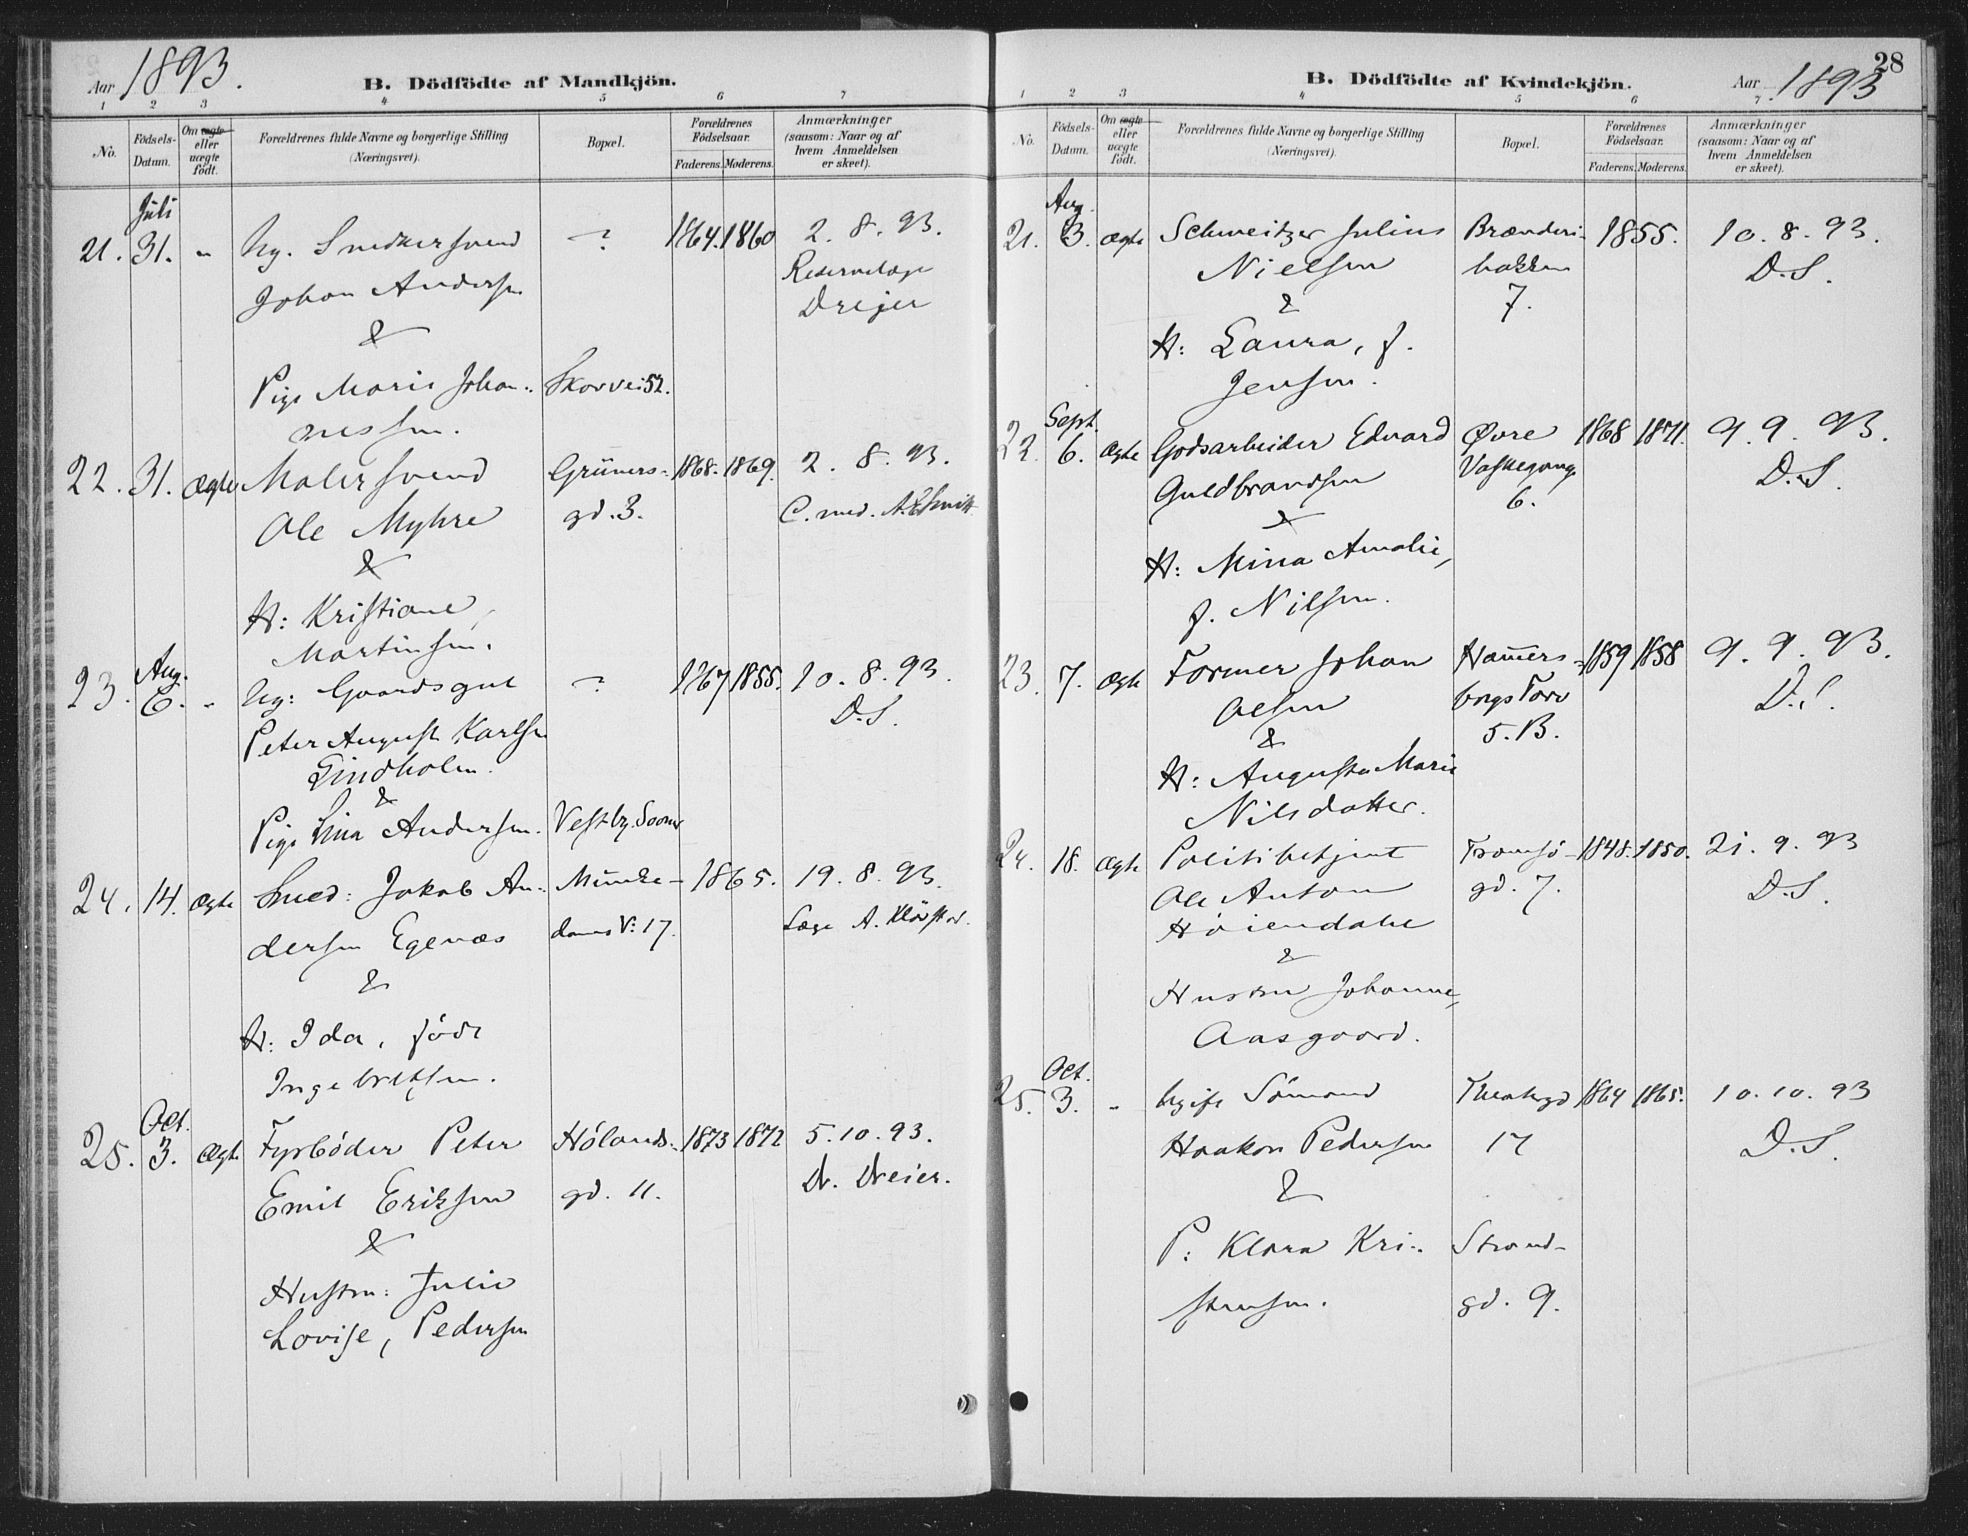 Aar 1893.
B. Dödfödte af Mandkjön.
1 2 3 4 5 6 7
No.
Födsels-
Datum.
Om ægte
eller
uægte
födt.
Forældrenes fulde Navne og borgerlige Stilling
(Næringsvei).
Bopæl.
Forældrenes
Födselsaar.
Faderens. Moderens.
Anmærkninger
(saasom: Naar og af
hvem Anmeldelsen
er skeet).
Juli
21. 31. " Ug. Snedkersvend - ? 1864. 1860 2. 8. 93.
Johan Andersen Reservelæge
& Drejer
Pige Marie Johan- Skovvei 52.
nessen.
22. 31. Ægte Malersvend Grüners- 1868. 1869. 2. 8. 93.
Ole Myhre gd. 3. C. med. A. E. Smitt
&
H: Kristiane,
Martinsen.
Aug.
23. 6. " Ug: Gaardsgut - ? 1867 1855. 10. 8. 93.
Peter August Karlsen D.S.
Lindholm.
&
Pige Lina Andersen. Vestby. Sooner
24. 14. Ægte Smed: Jakob An- Munke- 1865. 19. 8. 93.
dersen Egenæs dams V: 17. Læge A.
&
H: Ida, föde
Ingebretsen.
Oct.
25. 3. Ægte Fyrböder Peter Hölands- 1873 1872 5. 10. 93.
Emil Eriksen gd. 11. Dr. Dreier.
&
Hustru: Julie
Lovise, Pedersen
28
B. Dödfödte af Kvindekjön.
Aar 1893
1 2 3 4 5 6 7
No.
Födsels-
Datum.
Om ægte
eller
uægte
födt.
Forældrenes fulde Navne og borgerlige Stilling
(Næringsvei).
Bopæl.
Forældrenes
Födselsaar.
Faderens. Moderens.
Anmærkninger
(saasom: Naar og af
hvem Anmeldelsen
er skeet).
Aug.
21. 3. Ægte Schweitzer Julius Brænderi- 1855. 10. 8. 93.
Nielsen bakken D.S.
& 7.
H: Laura, f.
Jensen.
Sept.
22. 6. Ægte Godsarbeider Edvard Øvre 1868 1871. 9. 9. 93.
Guldbrandsen Vaskegang D.S.
& 6.
H: Mina Amalie,
f. Nilsen.
23. 7. Ægte Former Johan Hamers- 1859 1858 9. 9. 93.
Olsen borgs Torv D.S.
& 5. B.
H: Augusta Marie
Nilsdatter.
24. 18. Ægte Politibetjent Tromsö- 1848. 1850. 21. 9. 93
Ole Anton gd. 7. D.S.
Höiendahl
&
Hustru Johanne,
Aasgaard.
Oct.
25. 3. " Ugift Sömand Theatergd 1864 1865. 10. 10. 93
Haakon Pedersen 17 D.S.
&
P: Klara Kri- Strand-
stensen. gd. 9.